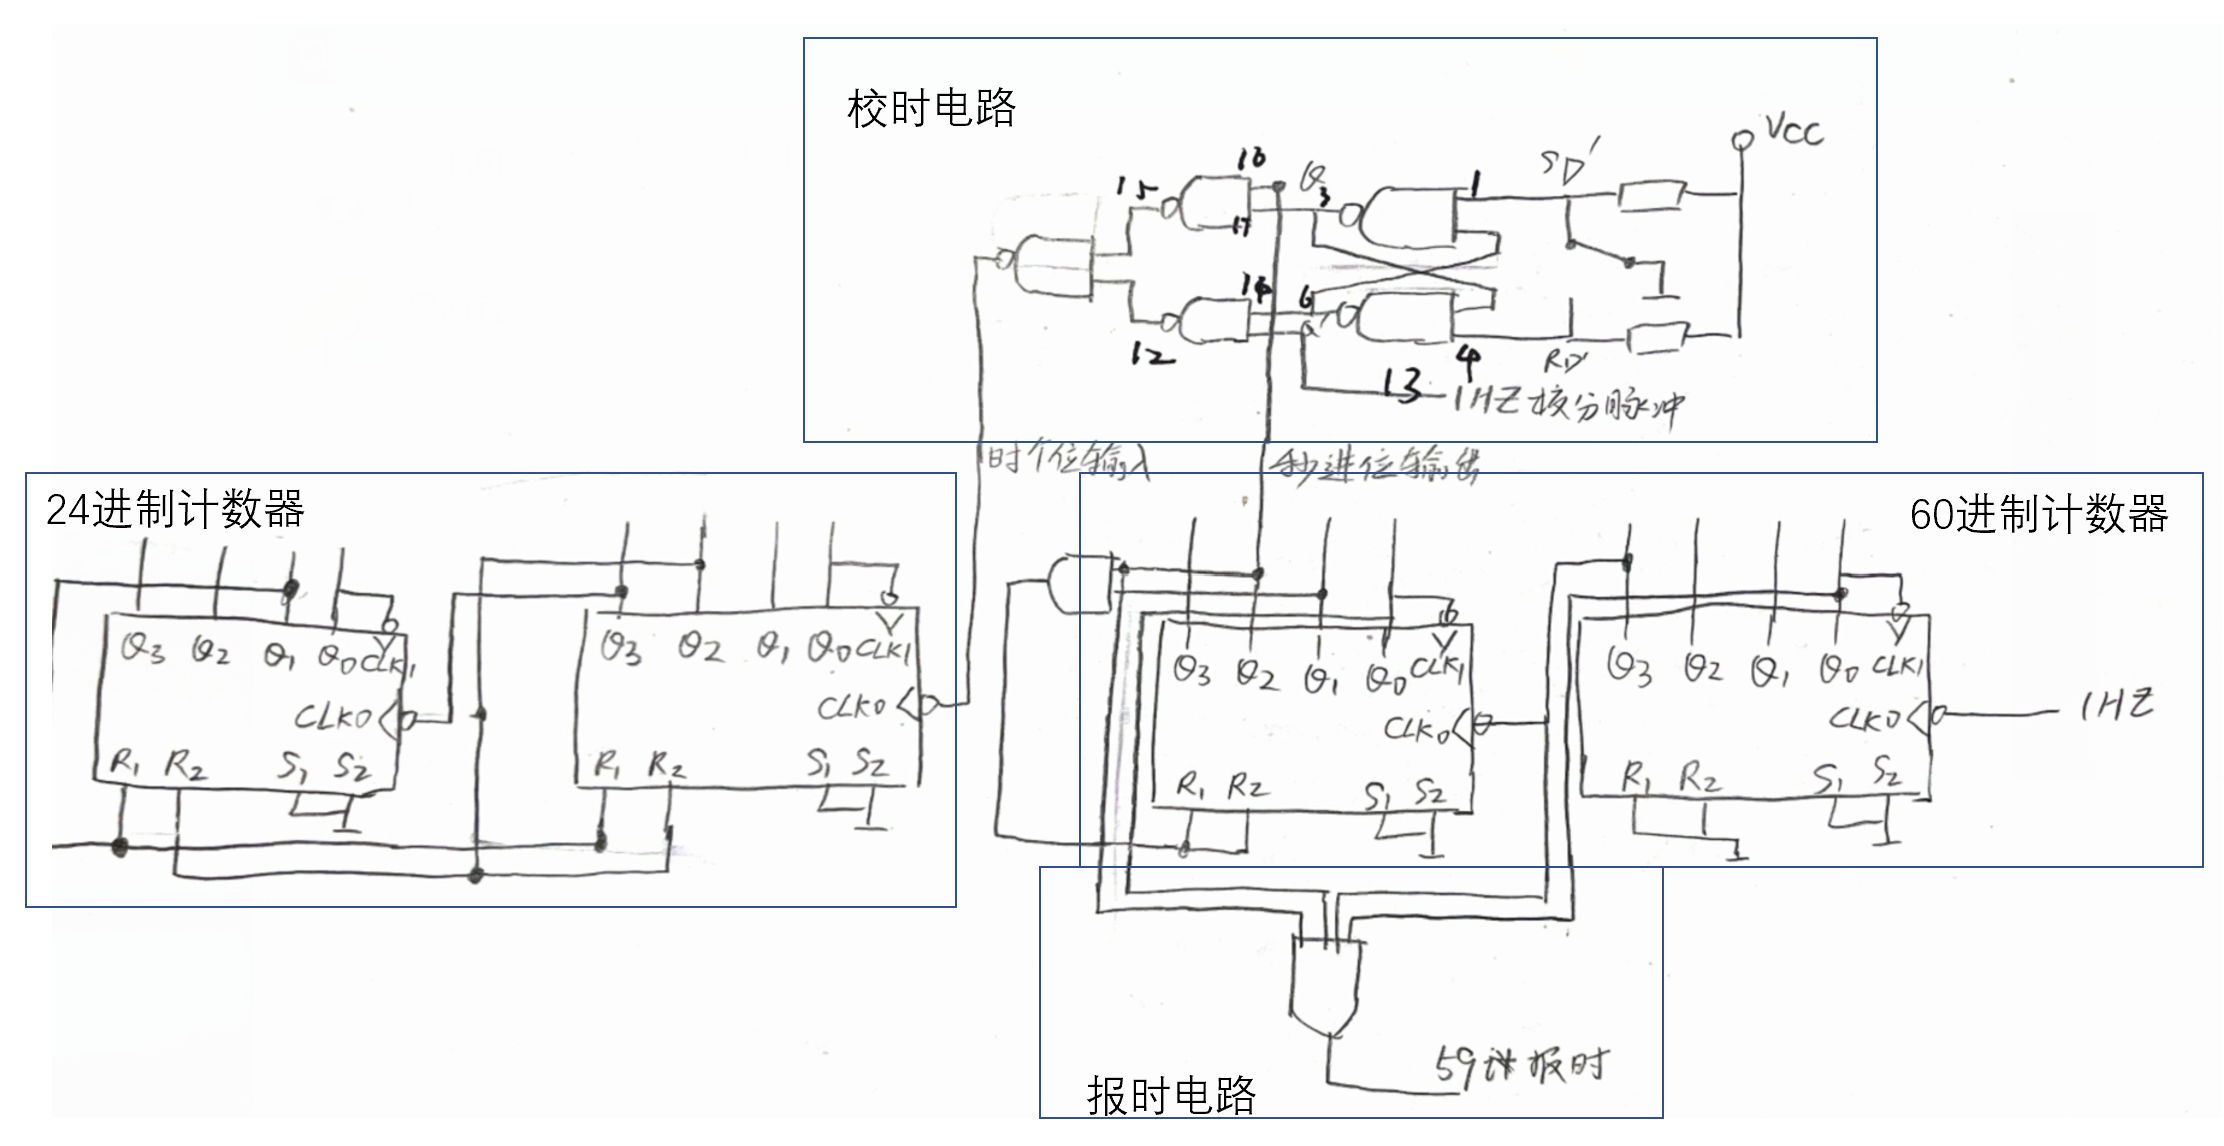 校时电路
VCC
SD'
10
Q
3
1
15
17
14
6
Q'
12
4
RD'
13
1HZ校分脉冲
时个位输入
秒进位输出
24进制计数器
60进制计数器
Q3 Q2 Q1 Q0 CLK1
CLK0
R1 R2 S1 S2
Q3 Q2 Q1 Q0 CLK1
CLK0
R1 R2 S1 S2
Q3 Q2 Q1 Q0 CLK1
CLK0
R1 R2 S1 S2
Q3 Q2 Q1 Q0 CLK1
CLK0
1HZ
R1 R2 S1 S2
59 报时
报时电路